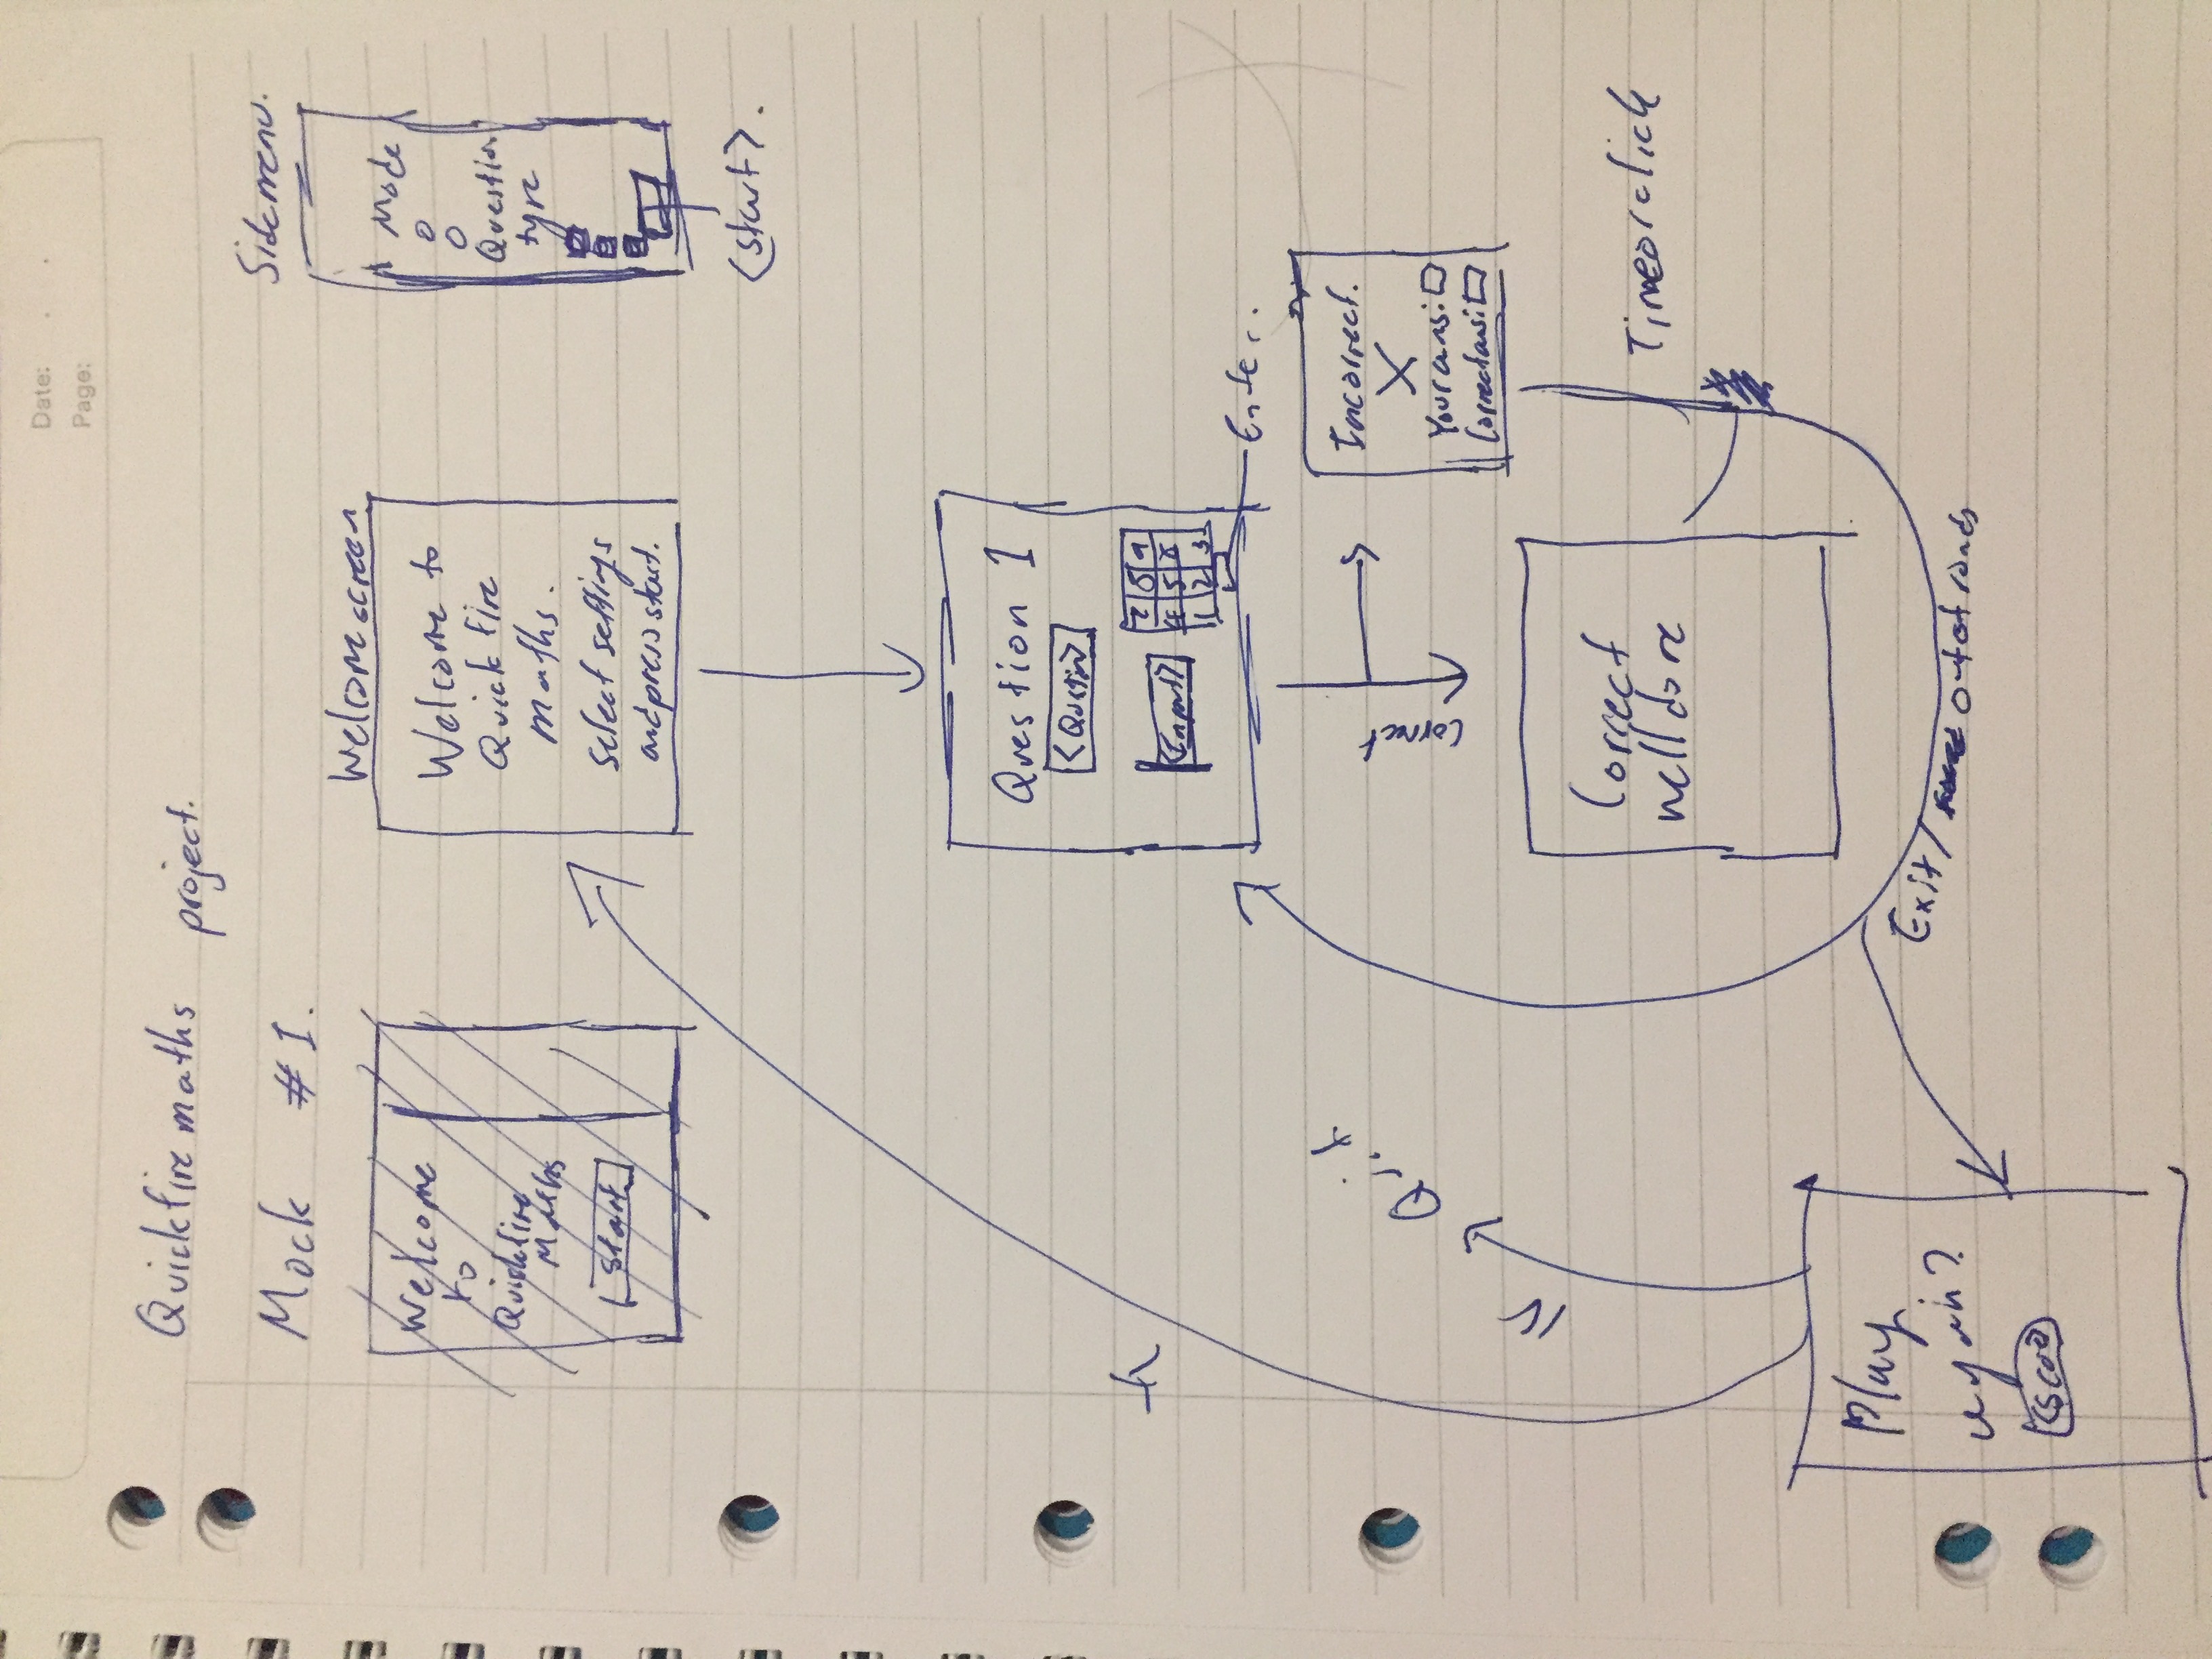 Date: . .
Page:
Quickfire maths project.
Mock #1.
Sidemenu.
Welcome screen
Welcome
to
Quickfire
Maths
Start
Welcome to
Quickfire
maths.
select settings
and press start.
Mode
Question
type
<start>.
Question 1
<Question>
<Input>
7 8 9
4 5 6
1 2 3
Enter.
Y
Quit
N
Correct
Incorrect.
X
Your ans:
Correct ans:
Correct
well done
Time or click
Exit/ out of rounds
Play
again?
<Score>